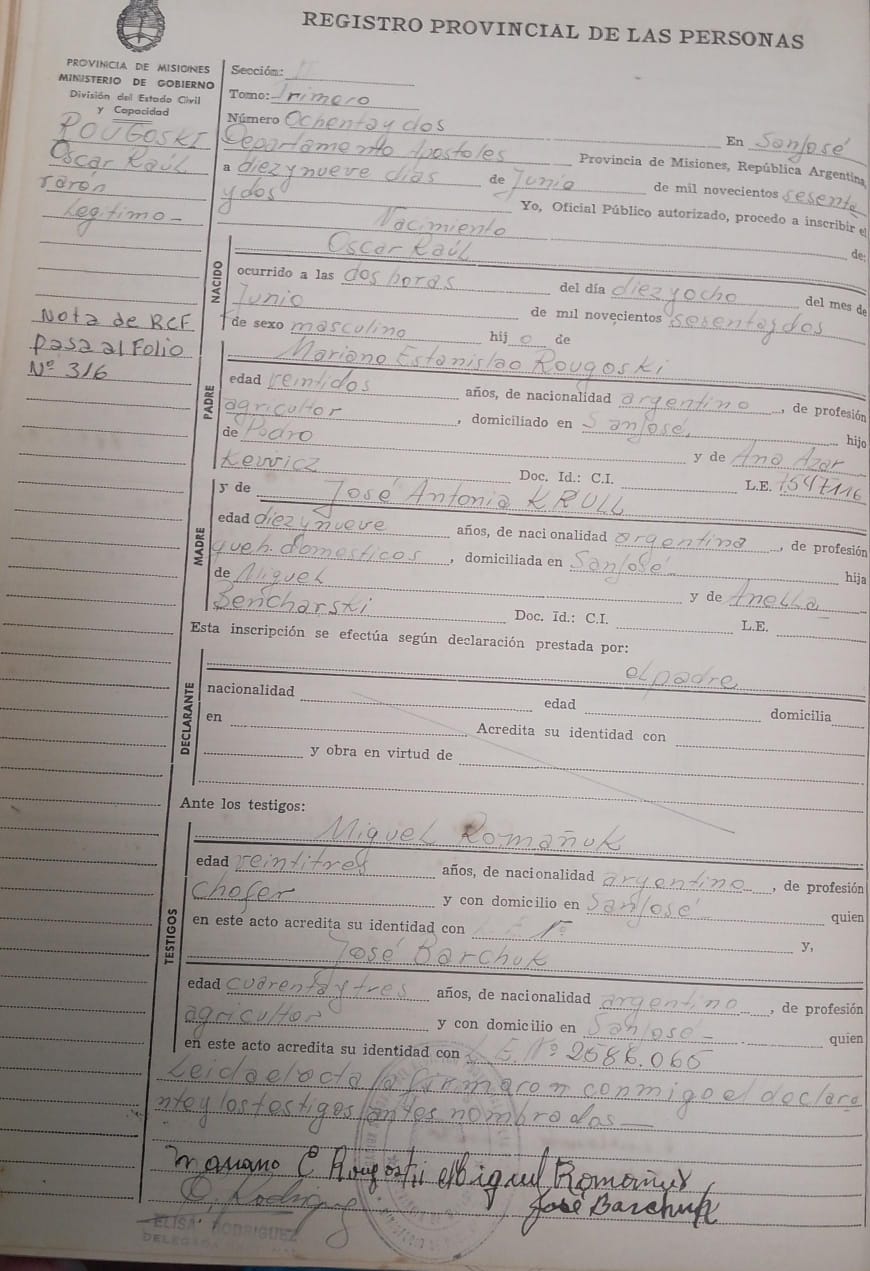 REGISTRO PROVINCIAL DE LAS PERSONAS
PROVINCIA DE MISIONES
MINISTERIO DE GOBIERNO
División del Estado Civil
y Capacidad
ROUGOSKI
Oscar Raúl
varón
Legitimo -
Nota de RCF
pasa al Folio
Nº 316
Sección:
Tomo: Primero
Número Ochenta y dos
En San José
Departamento Apostoles Provincia de Misiones, República Argentina,
a diez y nueve dias de Junio de mil novecientos sesenta
y dos Yo, Oficial Público autorizado, procedo a inscribir el
Nacimiento de:
NACIDO
Oscar Raúl
ocurrido a las dos horas del día diez y ocho del mes de
Junio de mil novecientos sesenta y dos
de sexo masculino hijo de
PADRE
Mariano Estanislao Rougoski
edad veintidos años, de nacionalidad argentino, de profesión
agricultor, domiciliado en San José, hijo
de Pedro y de Ana Azar
kewicz Doc. Id.: C.I. L.E. 7547116
MADRE
y de José Antonia KRULL
edad diez y nueve años, de nacionalidad argentina, de profesión
queh. domesticos, domiciliada en San José hija
de Miguel y de Anella
Bencharski Doc. Id.: C.I. L.E.
Esta inscripción se efectúa según declaración prestada por:
DECLARANTE
el padre
nacionalidad edad domicilia
en Acredita su identidad con
y obra en virtud de
Ante los testigos:
TESTIGOS
Miguel Romañuk
edad veintitres años, de nacionalidad argentino, de profesión
Chofer y con domicilio en San José quien
en este acto acredita su identidad con Nº y,
José Barchuk
edad cuarenta y tres años, de nacionalidad argentino, de profesión
agricultor y con domicilio en San José - quien
en este acto acredita su identidad con L.E. Nº 2586.065
Leida el acta la firmaron conmigo el declara
nte y los testigos antes nombrados —
Mariano E Rougoski Miguel Romañuk
José Barchuk
E. Rodriguez
ELISA RODRIGUEZ